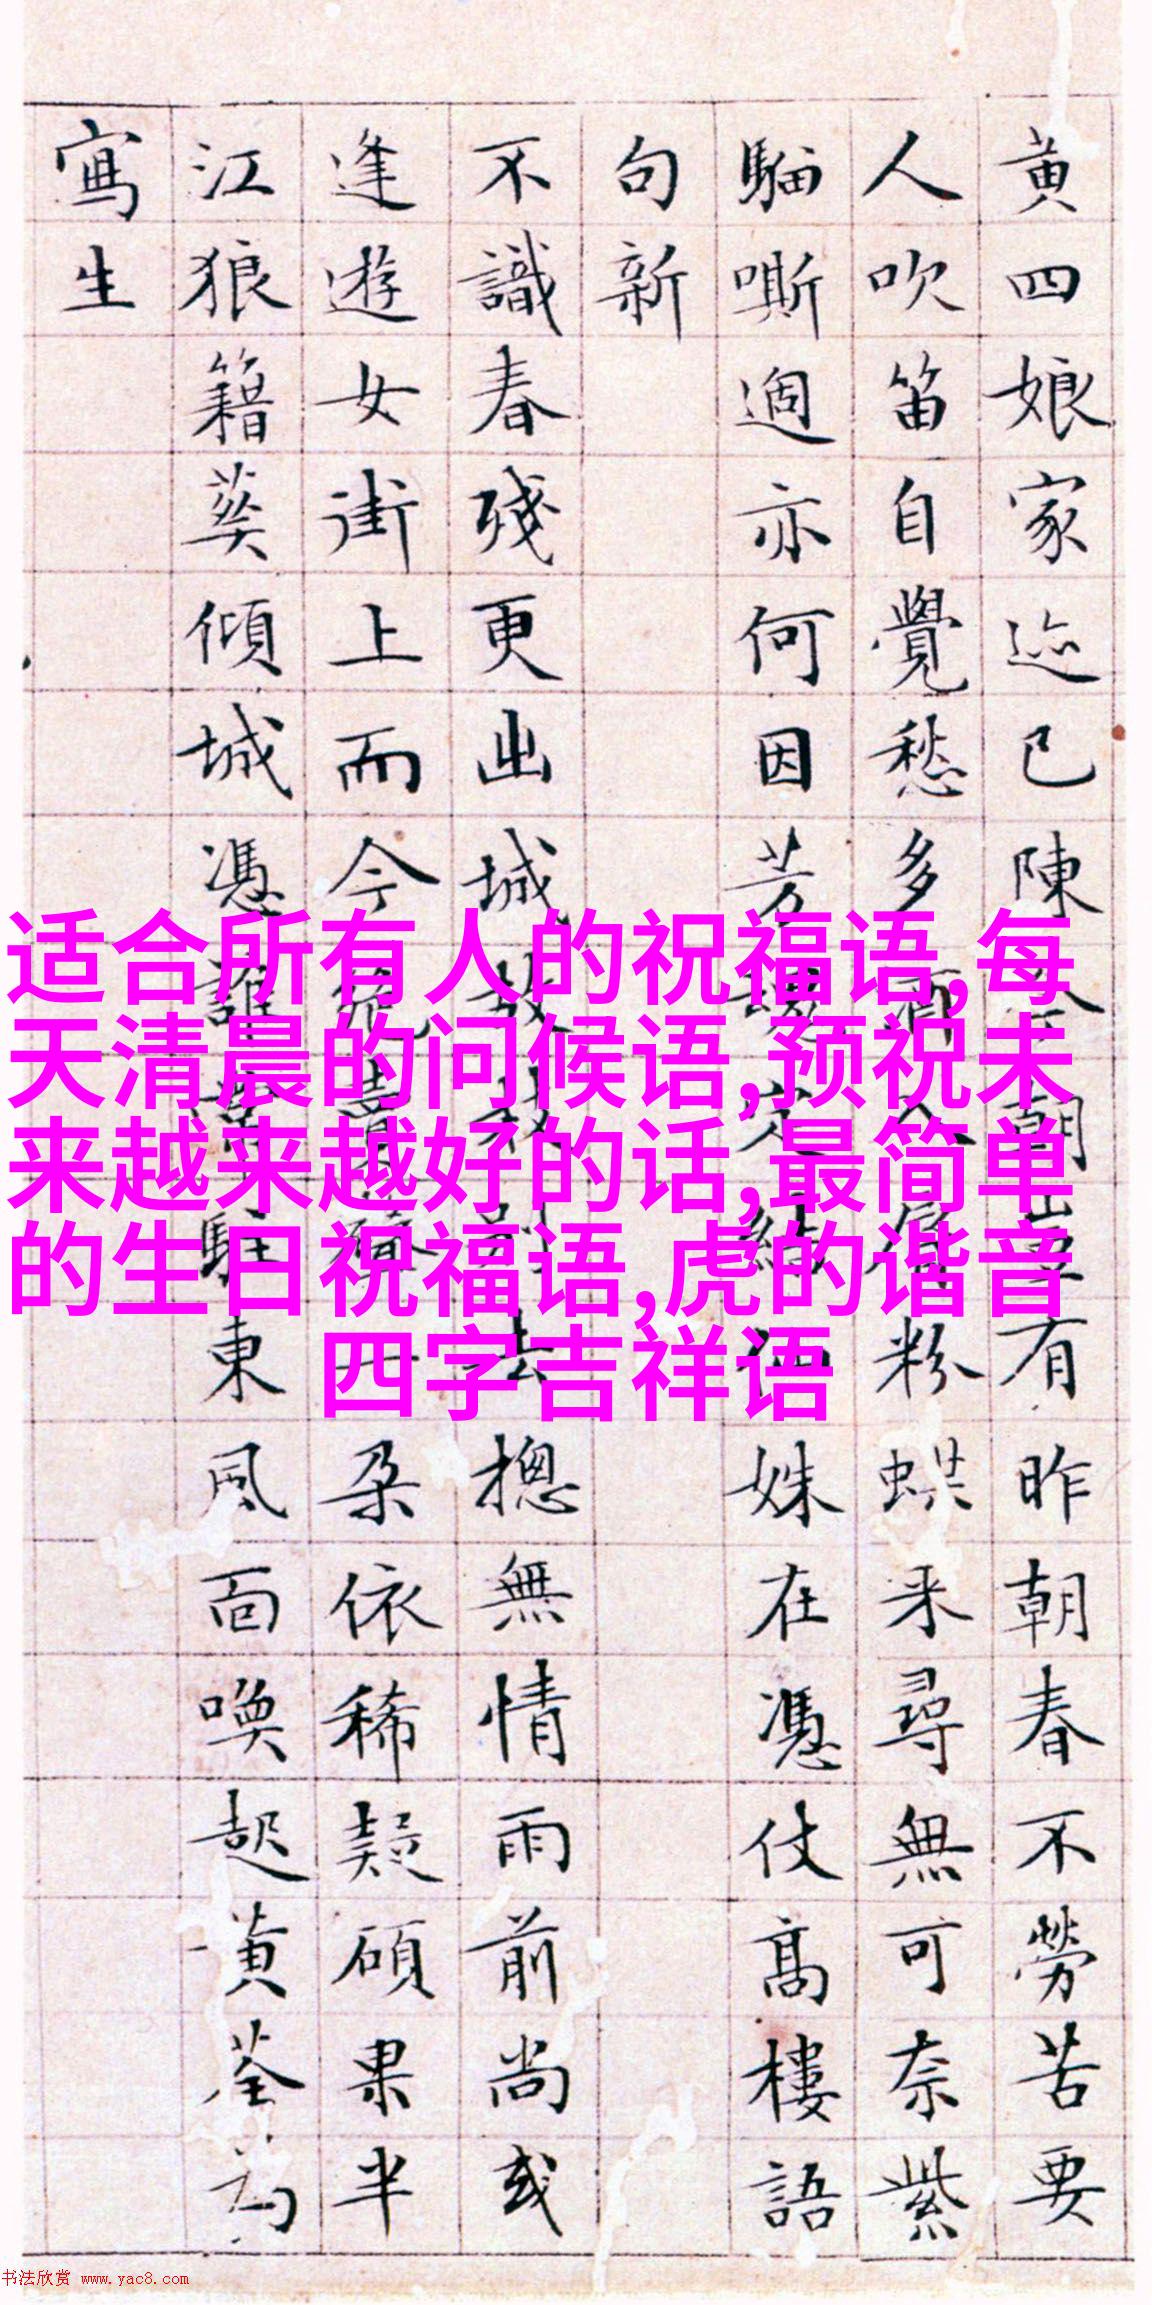 黄四娘家迹已陳今朝豈有昨朝春不勞苦要
人吹笛自覺愁多屑粉蜨来尋無可奈紫
騮嘶過亦何因芳定結仙姝在憑仗高樓語
句新
不識春残更出城故故去摠無情雨前尚或
逢遊女街上而今一朶依稀疑碩果半
江狼籍葵傾城憑誰駐東風面喚起黄荃為
寫生
适合所有人的祝福语,每
天清晨的问候语,预祝未
来越来越好的话,最简单
的生日祝福语,虎的谐音
四字吉祥语
书法欣赏 www.yac8.com